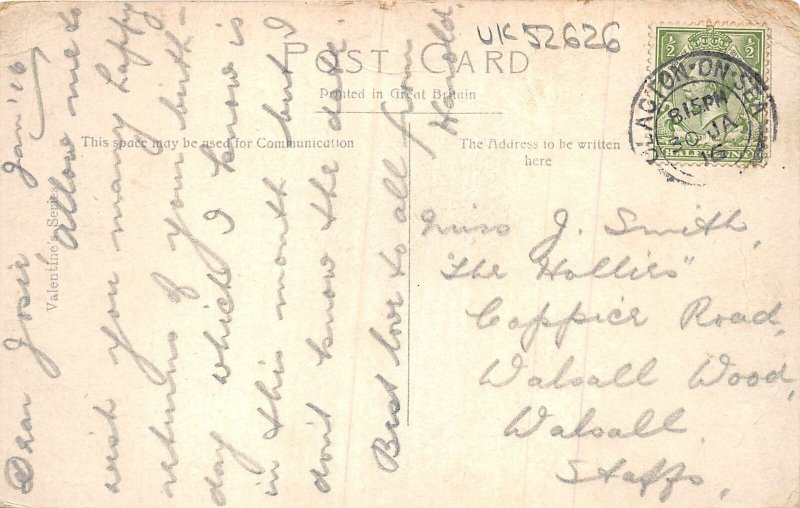 UK52626
POST CARD
Printed in Great Britain
This space may be used for Communication
The Address to be written
here
Valentine's Series
½ ½
CLACTON-ON-SEA
8.15PM
30 JA
16
HALFPENNY
Dear Josie Jan '16
Allow me to
wish you many happy
returns of your birth-
day which I know is
in this month but I
don't know the date
Best love to all from
Harold.
Miss J. Smith,
"The Hollies"
Coppice Road,
Walsall Wood,
Walsall.
Staffs,